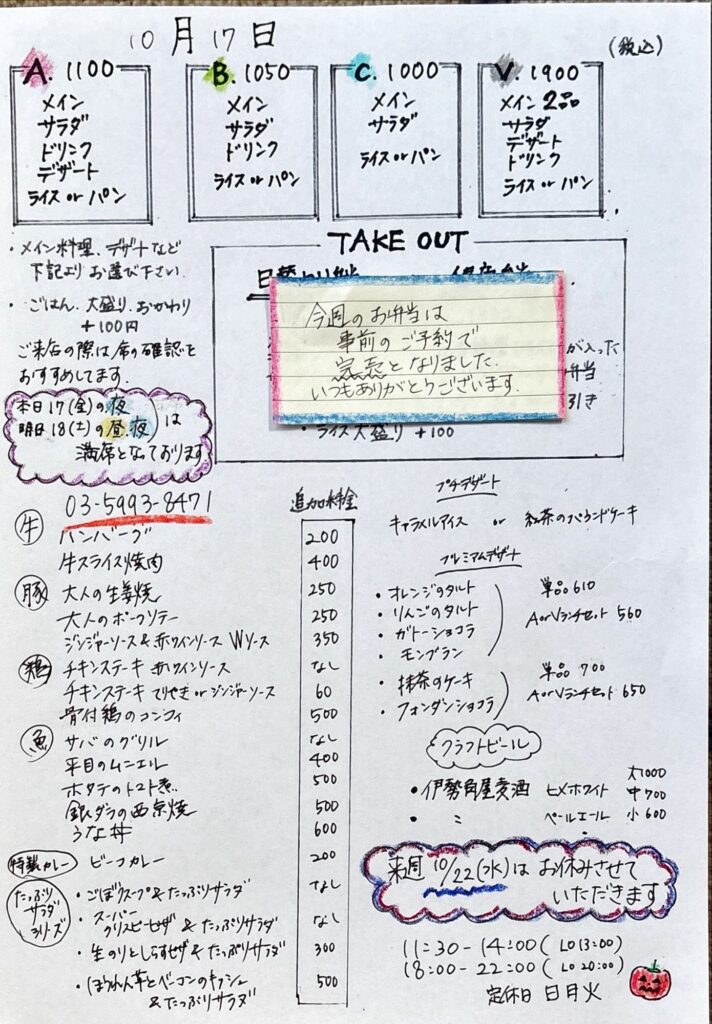 10月17日
(税込)
A. 1100
メイン
サラダ
ドリンク
デザート
ライス or パン
B. 1050
メイン
サラダ
ドリンク
ライス or パン
C. 1000
メイン
サラダ
ライス or パン
V. 1900
メイン 2品
サラダ
デザート
ドリンク
ライス or パン
・メイン料理、デザートなど
下記よりお選び下さい
・ごはん、大盛り、おかわり
+100円
ご来店の際は席の確認を
おすすめしてます.
本日17(金)の夜
明日18(土)の昼、夜 は
満席となっております
03-5993-8471
TAKE OUT
今週のお弁当は
事前のご予約で
完売となりました.
いつもありがとうございます.
が入った
弁当
引き
・ライス大盛り +100
追加料金
牛
ハンバーグ 200
牛スライス焼肉 400
豚
大人の生姜焼 250
大人のポークソテー 250
ジンジャーソース&赤ワインソース Wソース 350
鶏
チキンステーキ 赤ワインソース なし
チキンステーキ てりやき or ジンジャーソース 60
骨付鶏のコンフィ 500
魚
サバのグリル なし
平目のムニエル 400
ホタテのトマト煮 500
銀ダラの西京焼 500
うな丼 600
特製カレー ビーフカレー 200
たっぷりサラダシリーズ
・ごぼうスープ&たっぷりサラダ なし
・スーパークリスピーピザ&たっぷりサラダ なし
・生のりとしらすピザ&たっぷりサラダ 300
・ほうれん草とベーコンのキッシュ
&たっぷりサラダ 500
プチデザート
キャラメルアイス or 紅茶のパウンドケーキ
プレミアムデザート
・オレンジのタルト
・りんごのタルト
・ガトーショコラ
・モンブラン
単品610
AorVランチセット 560
・抹茶のケーキ
・フォンダンショコラ
単品 700
AorVランチセット 650
クラフトビール
・伊勢角屋麦酒 ヒメホワイト
・〃 ペールエール
大1000
中700
小600
来週 10/22(水)は お休みさせて
いただきます
11:30-14:00(LO13:00)
18:00-22:00(LO20:00)
定休日 日月火